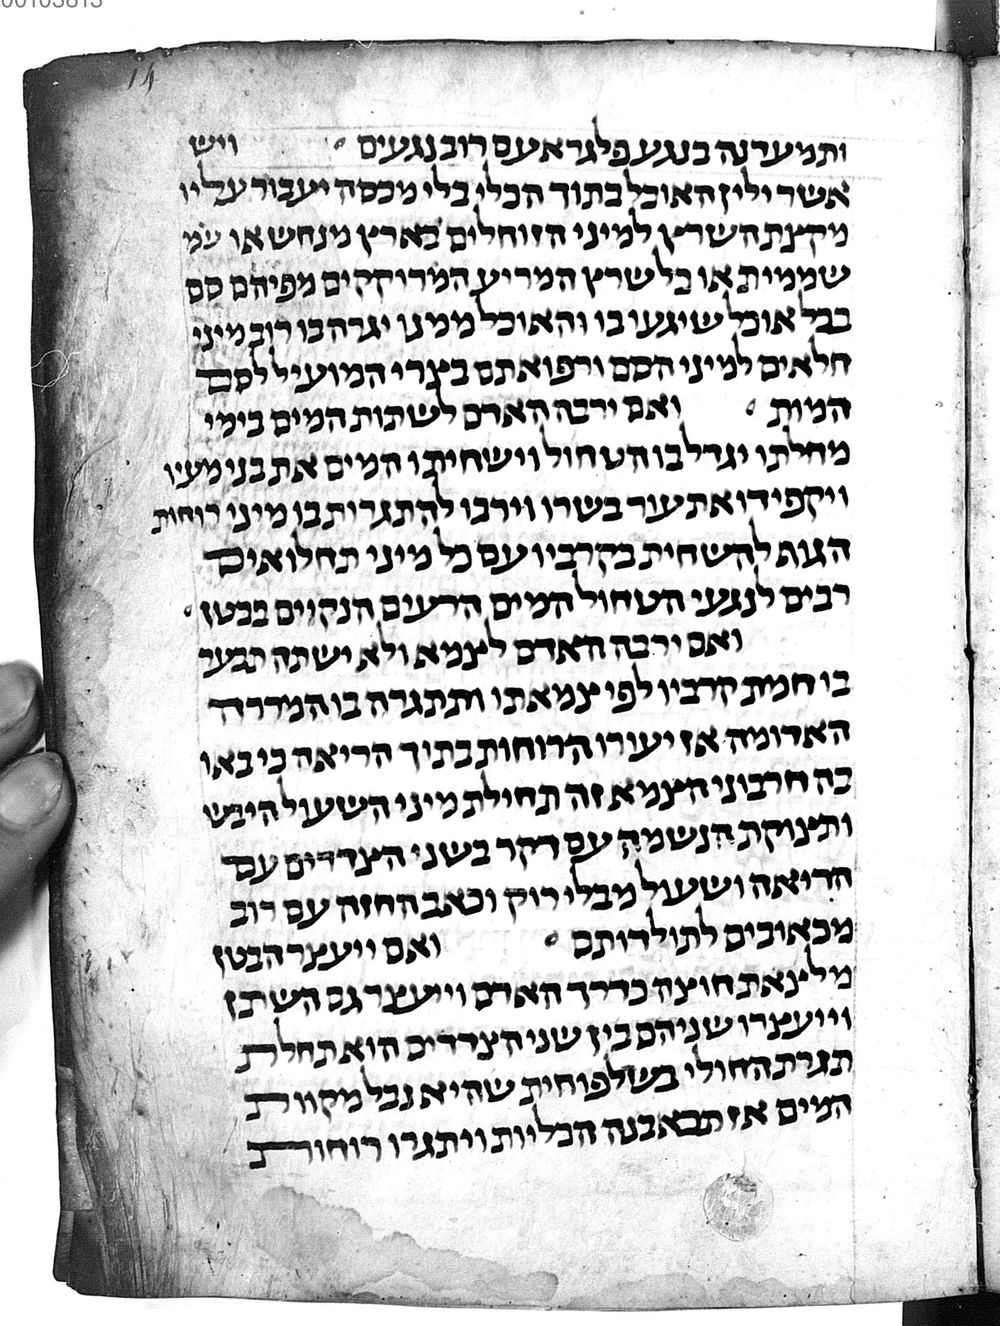 00103813
14
ותמערנה בנגע פלגרא עם רוב נגעים ויש
אשר ילין האוכל בתוך הכלי בלי מכסה יעבור עליו
מקצת השרץ למיני הזוחלים בארץ מנחש או עם
שממית או כל שרץ המריע המרוקקים מפיהם סם
בכל אוכל שיגעו בו והאוכל ממנו יגרה בו רוב מיני
חלאים למיני הסם ורפואתם בצרי המועיל לסם
המות ואם ירבה האדם לשתות המים בימי
מחלתו יגדל בו הטחול וישחיתו המים את בני מעיו
ויקפידו את עור בשרו וירבו להתגרות בו מיני רוחות
הגות להשחית בקרביו עם כל מיני תחלואים
רבים לנגעי הטחול המים הרעים הנקוים בבטן
ואם ירבה האדם לצמא ולא ישתה תבער
בו חמת קרביו לפי צמאתו ותתגרה בו המררה
האדומה אז יעירו הרוחות בתוך הריאה כי באו
בה חרבוני הצמא זה תחילת מיני השעול היבש
ותצוקת הנשמה עם דקר בשני הצדדים עם
הריאה ושעול מבלי רוק וכאב החזה עם רוב
מכאובים לתולדותם ואם ייעצר הבטן
מלצאת חוצה כדרך האדם וייעצר גם השתן
וייעצרו שניהם בין שני הצדדים הוא תחלת
תגרת החולי בשלפוחית שהיא נבל מקוות
המים אז תבאבנה הכליות ויתגרו רוחות